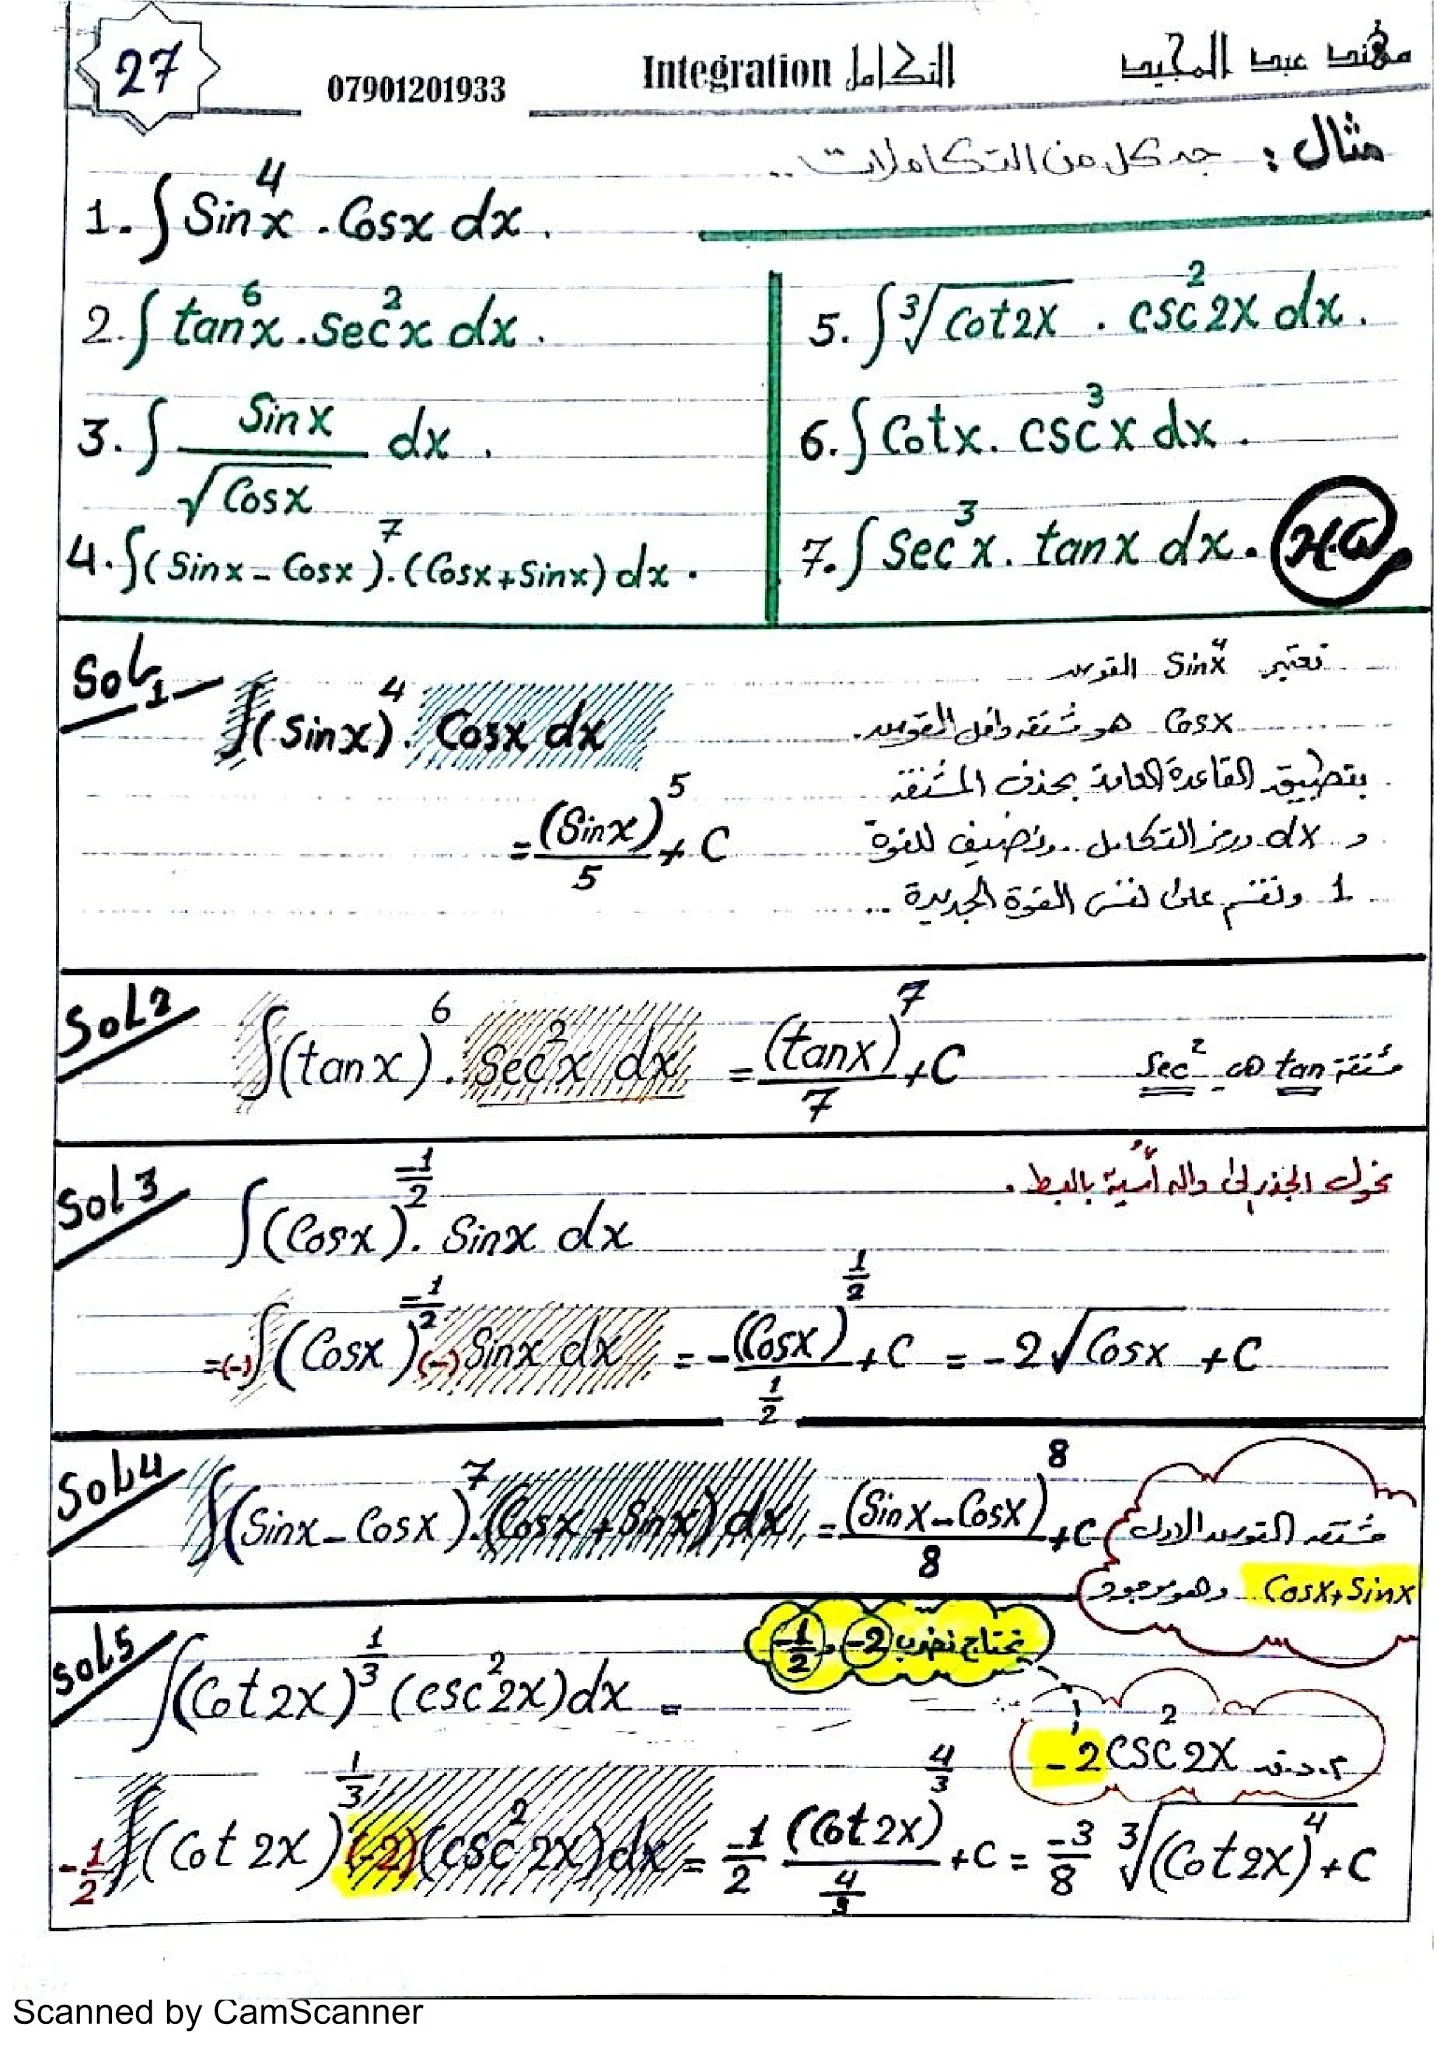 27
07901201933
Integration التكامل
مهند عبد المجيد
مثال : جد كل من التكاملات ..
1. ∫ Sin⁴x . Cosx dx .
2. ∫ tan⁶x . Sec²x dx .
3. ∫ Sinx / √Cosx dx .
4. ∫ (Sinx - Cosx)⁷ . (Cosx + Sinx) dx .
5. ∫ ³√Cot2x . csc²2x dx .
6. ∫ Cotx . csc³x dx .
7. ∫ Sec³x . tanx dx . H.W
Sol1
∫ (Sinx)⁴ . Cosx dx
= (Sinx)⁵/5 + C
نعتبر Sin⁴x القوس
Cosx هو مشتقة داخل القوس .
بتطبيق القاعدة العامة بحذف المشتقة
و dx ورمز التكامل .. ونضيف للقوة
1 ونقسم على نفس القوة الجديدة ...
Sol2
∫ (tanx)⁶ . Sec²x dx = (tanx)⁷/7 + C
مشتقة tan Sec²
Sol3
نحول الجذر إلى دالة أسية بالبسط .
∫ (Cosx)^(-1/2) . Sinx dx
= (-) ∫ (Cosx)^(-1/2) (-) Sinx dx = - (Cosx)^(1/2) / (1/2) + C = -2√Cosx + C
Sol4
∫ (Sinx - Cosx)⁷ . (Cosx + Sinx) dx = (Sinx - Cosx)⁸/8 + C
مشتقة القوس الاول
Cosx + Sinx وهو موجود
Sol5
نحتاج نضرب -2 و -1/2
∫ (Cot2x)^(1/3) (csc²2x) dx =
-2 csc²2x
-1/2 ∫ (Cot2x)^(1/3) (-2) (csc²2x) dx = -1/2 (Cot2x)^(4/3) / (4/3) + C = -3/8 ³√(Cot2x)⁴ + C
Scanned by CamScanner